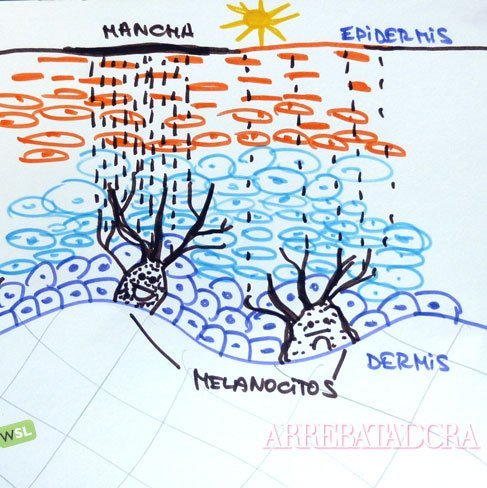 MANCHA
EPIDERMIS
DERMIS
MELANOCITOS
WSL
ARREBATADORA